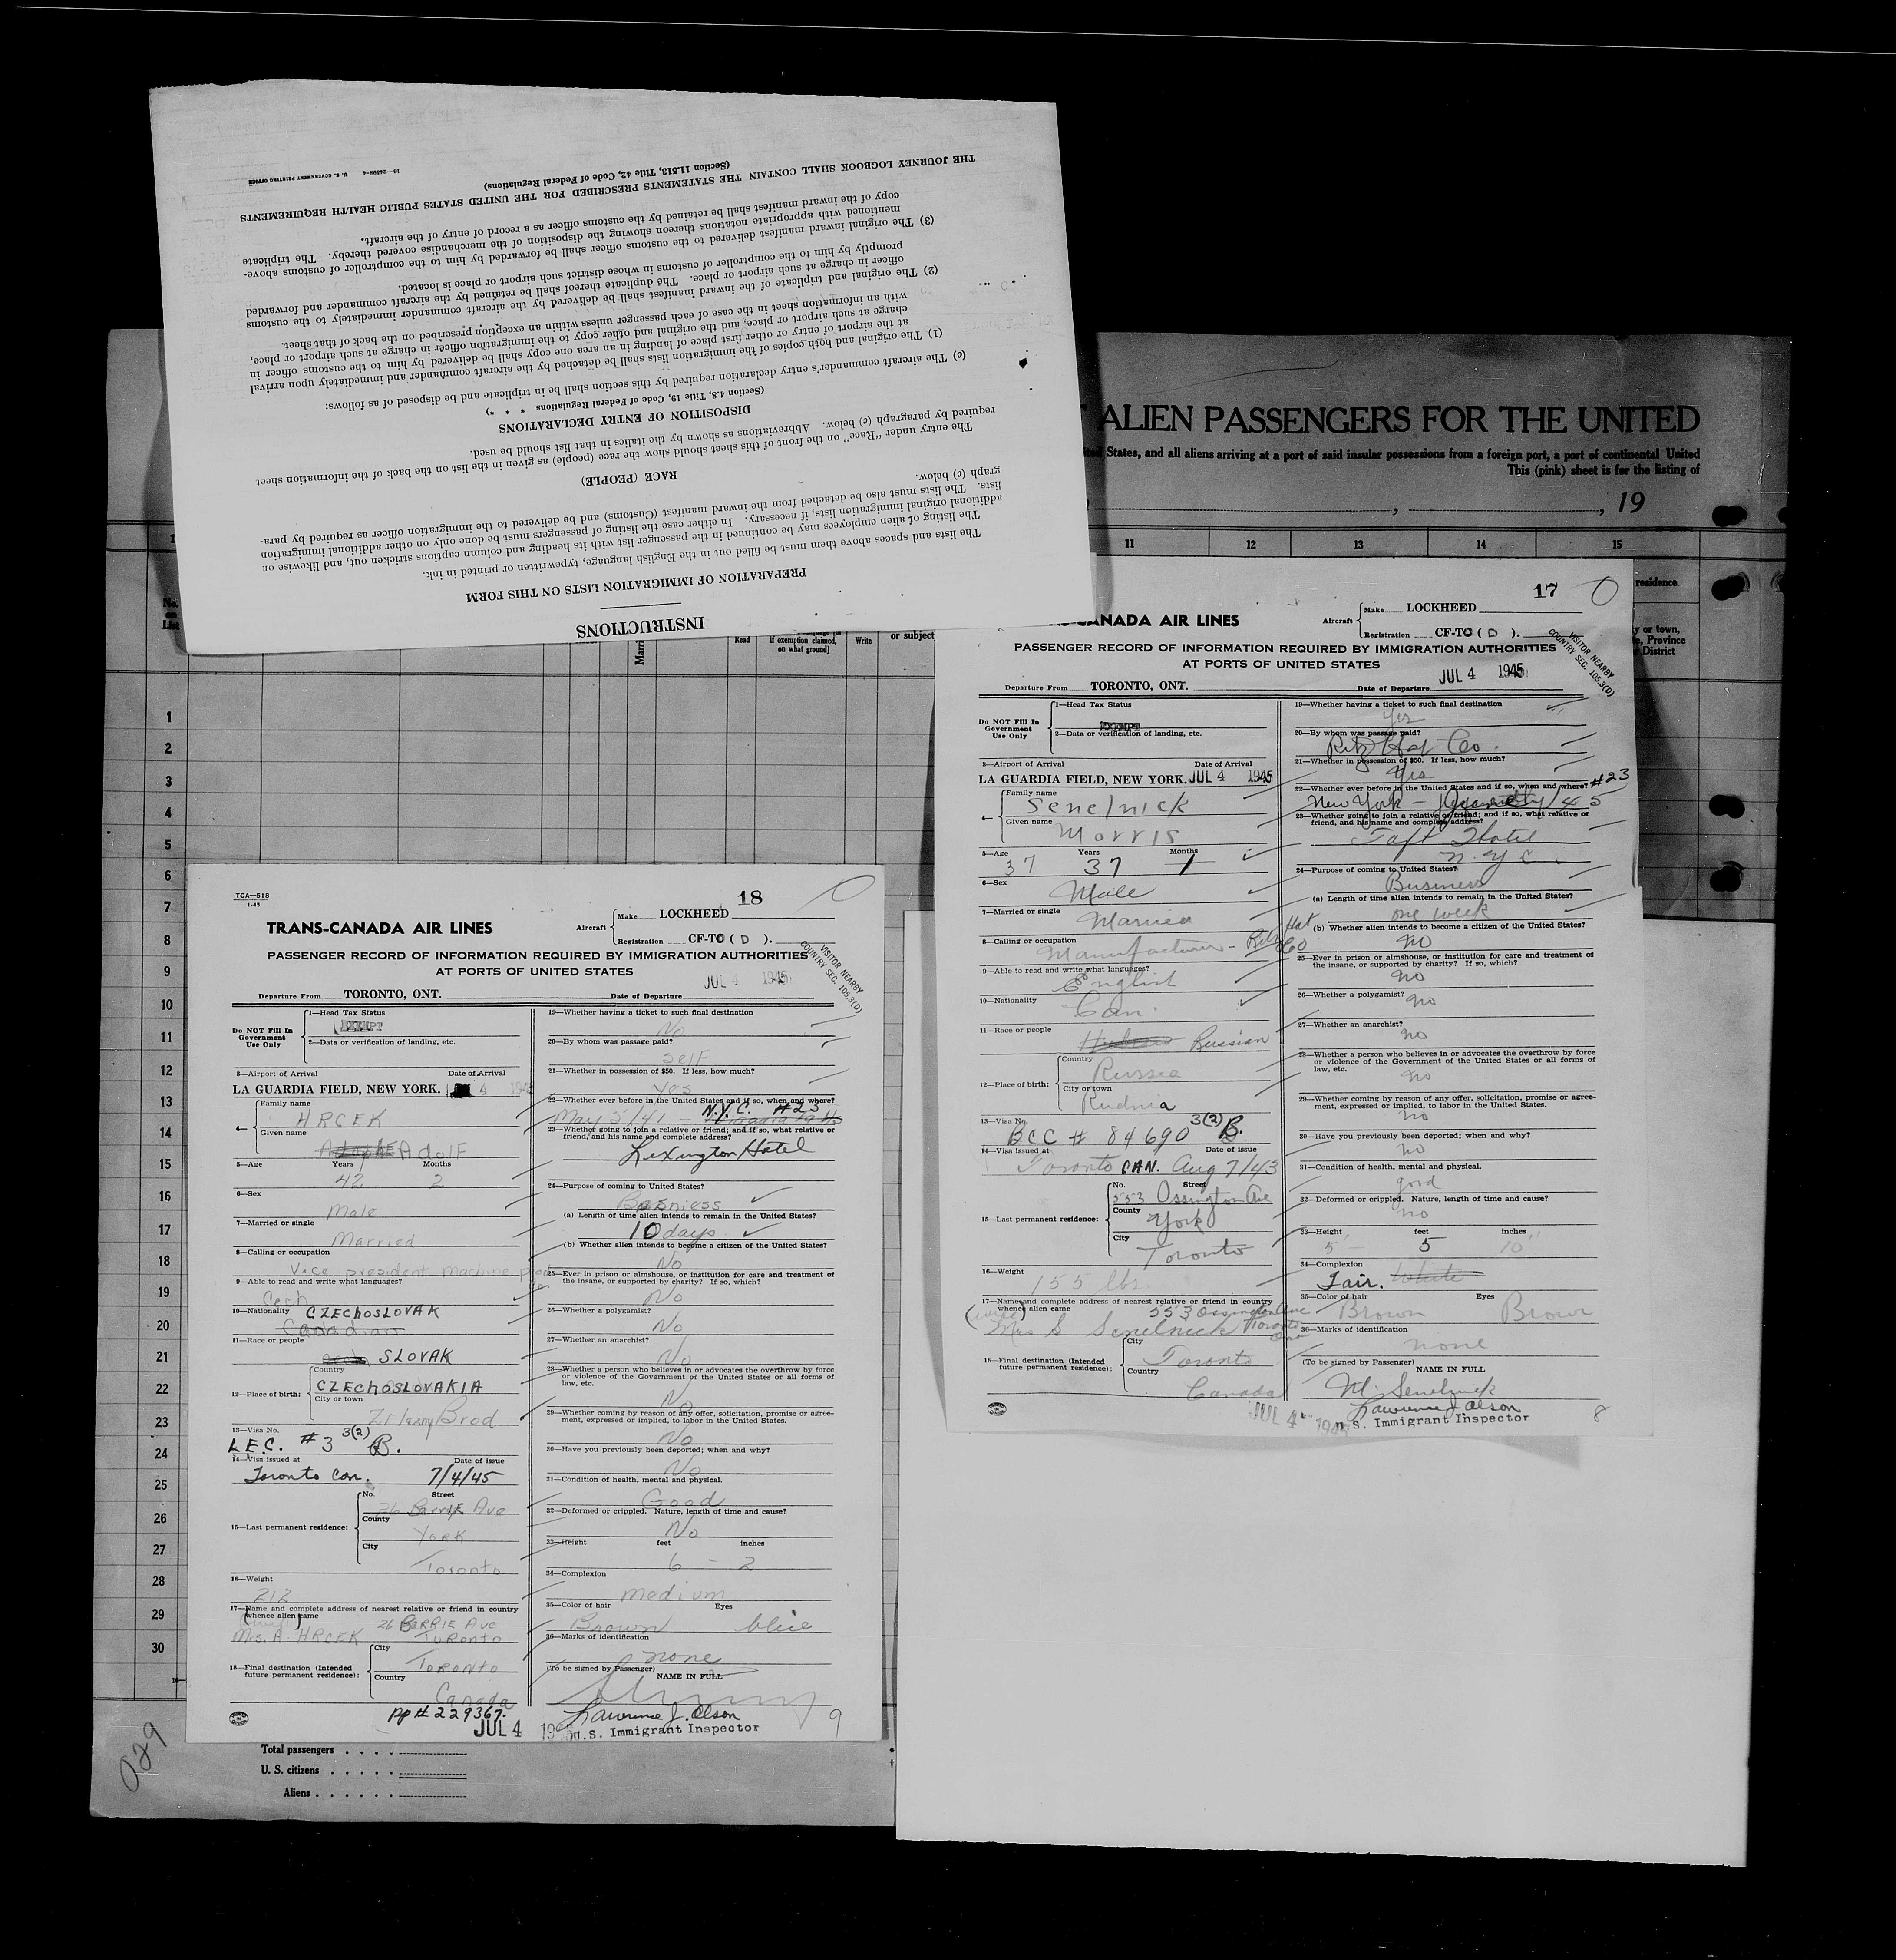 INSTRUCTIONS
PREPARATION OF IMMIGRATION LISTS ON THIS FORM
The lists and spaces above them must be filled out in the English language, typewritten or printed in ink.
The listing of alien employees may be continued in the passenger list with its heading and column captions stricken out, and likewise on
additional original immigration lists, if necessary. In either case the listing of passengers must be done only on other additional immigration
lists. The lists must also be detached from the inward manifest (Customs) and be delivered to the immigration officer as required by para-
graph (c) below.
RACE (PEOPLE)
The entry under "Race" on the front of this sheet should show the race (people) as given in the list on the back of the information sheet
required by paragraph (c) below. Abbreviations as shown by the italics in that list should be used.
DISPOSITION OF ENTRY DECLARATIONS
(Section 4.8, Title 19, Code of Federal Regulations * * *)
(c) The aircraft commander's entry declaration required by this section shall be in triplicate and be disposed of as follows:
(1) The original and both copies of the immigration lists shall be detached by the aircraft commander and immediately upon arrival
at the airport of entry or other first place of landing in an area one copy shall be delivered by him to the customs officer in
charge at such airport or place, and the original and other copy to the immigration officer in charge at such airport or place,
with an information sheet in the case of each passenger unless within an exception prescribed on the back of that sheet.
(2) The original and triplicate of the inward manifest shall be delivered by the aircraft commander immediately to the customs
officer in charge at such airport or place. The duplicate thereof shall be retained by the aircraft commander and forwarded
promptly by him to the comptroller of customs in whose district such airport or place is located.
(3) The original inward manifest delivered to the customs officer shall be forwarded by him to the comptroller of customs above-
mentioned with appropriate notations thereon showing the disposition of the merchandise covered thereby. The triplicate
copy of the inward manifest shall be retained by the customs officer as a record of entry of the aircraft.
THE JOURNEY LOGBOOK SHALL CONTAIN THE STATEMENTS PRESCRIBED FOR THE UNITED STATES PUBLIC HEALTH REQUIREMENTS
(Section 11.513, Title 42, Code of Federal Regulations)
16—24598-4 U. S. GOVERNMENT PRINTING OFFICE
ALIEN PASSENGERS FOR THE UNITED
States, and all aliens arriving at a port of said insular possessions from a foreign port, a port of continental United
This (pink) sheet is for the listing of
, , 19
11 12 13 14 15
residence
y or town,
Province
District
No.
on
List
Read
if exemption claimed,
on what ground]
Write
or subject
1
2
3
4
5
6
7
8
9
10
11
12
13
14
15
16
17
18
19
20
21
22
23
24
25
26
27
28
29
30
Total passengers
U. S. citizens
Aliens
029
17
CANADA AIR LINES
Aircraft
Make LOCKHEED
Registration CF-TC ( D ).
PASSENGER RECORD OF INFORMATION REQUIRED BY IMMIGRATION AUTHORITIES
AT PORTS OF UNITED STATES
VISITOR NEARBY
COUNTRY SEC. 105.3(D)
Departure From TORONTO, ONT. Date of Departure JUL 4 1945
Do NOT Fill In
Government
Use Only
1—Head Tax Status
EXEMPT
2—Data or verification of landing, etc.
3—Airport of Arrival Date of Arrival
LA GUARDIA FIELD, NEW YORK. JUL 4 1945
4—
Family name
Senelnick
Given name
Morris
5—Age Years Months
37 37 1
6—Sex
Male
7—Married or single
Married
8—Calling or occupation
Manufacturer - Ritz Hat Co
9—Able to read and write what languages?
English
10—Nationality
Can.
11—Race or people
Russian
12—Place of birth:
Country
Russia
City or town
Rudnia
13—Visa No.
BCC # 84690 3(2) B.
14—Visa issued at Date of issue
Toronto CAN. Aug 7/43
15—Last permanent residence:
No. Street
553 Ossington Ave
County
York
City
Toronto
16—Weight
155 lbs.
17—Name and complete address of nearest relative or friend in country
whence alien came
(wife) 553 Ossington Ave
Mrs S Senelnick Toronto
Ont
18—Final destination (Intended
future permanent residence):
City
Toronto
Country
Canada
JUL 4 1945
19—Whether having a ticket to such final destination
Yes
20—By whom was passage paid?
Ritz Hat Co.
21—Whether in possession of $50. If less, how much?
Yes
22—Whether ever before in the United States and if so, when and where? #23
New York - /45
23—Whether going to join a relative or friend; and if so, what relative or
friend, and his name and complete address?
Taft Hotel
N.Y.C.
24—Purpose of coming to United States?
Business
(a) Length of time alien intends to remain in the United States?
one week
(b) Whether alien intends to become a citizen of the United States?
no
25—Ever in prison or almshouse, or institution for care and treatment of
the insane, or supported by charity? If so, which?
no
26—Whether a polygamist?
no
27—Whether an anarchist?
no
28—Whether a person who believes in or advocates the overthrow by force
or violence of the Government of the United States or all forms of
law, etc.
no
29—Whether coming by reason of any offer, solicitation, promise or agree-
ment, expressed or implied, to labor in the United States.
no
30—Have you previously been deported; when and why?
no
31—Condition of health, mental and physical.
good
32—Deformed or crippled. Nature, length of time and cause?
no
33—Height feet inches
5' - 5 10"
34—Complexion
Fair. White
35—Color of hair Eyes
Brown Brown
36—Marks of identification
none
(To be signed by Passenger)
NAME IN FULL
M. Senelnick
Lawrence J. Olson
U. S. Immigrant Inspector
8
TCA—518
1-45
18
TRANS-CANADA AIR LINES
Aircraft
Make LOCKHEED
Registration CF-TC ( D ).
PASSENGER RECORD OF INFORMATION REQUIRED BY IMMIGRATION AUTHORITIES
AT PORTS OF UNITED STATES
VISITOR NEARBY
COUNTRY SEC. 105.3(D)
Departure From TORONTO, ONT. Date of Departure JUL 4 1945
Do NOT Fill In
Government
Use Only
1—Head Tax Status
EXEMPT
2—Data or verification of landing, etc.
3—Airport of Arrival Date of Arrival
LA GUARDIA FIELD, NEW YORK. 4 1945
4—
Family name
HRCEK
Given name
Adolf
5—Age Years Months
42 2
6—Sex
Male
7—Married or single
Married
8—Calling or occupation
Vice president machine
9—Able to read and write what languages?
Cech
10—Nationality CZECHOSLOVAK
Canadian
11—Race or people
SLOVAK
12—Place of birth:
Country
CZECHOSLOVAKIA
City or town
Brod
13—Visa No.
L.E.C. #3 3(2) B.
14—Visa issued at Date of issue
Toronto Can. 7/4/45
15—Last permanent residence:
No. Street
26 Barrie Ave
County
York
City
Toronto
16—Weight
212
17—Name and complete address of nearest relative or friend in country
whence alien came
(wife) 26 BARRIE Ave
Mrs. A. HRCEK Toronto
18—Final destination (Intended
future permanent residence):
City
Toronto
Country
Canada
pp# 229367.
JUL 4 1945
19—Whether having a ticket to such final destination
No
20—By whom was passage paid?
Self
21—Whether in possession of $50. If less, how much?
Yes
22—Whether ever before in the United States and if so, when and where?
May 5/41 - N.Y.C. #23
23—Whether going to join a relative or friend; and if so, what relative or
friend, and his name and complete address?
Lexington Hotel
24—Purpose of coming to United States?
Busniess
(a) Length of time alien intends to remain in the United States?
10 days
(b) Whether alien intends to become a citizen of the United States?
No
25—Ever in prison or almshouse, or institution for care and treatment of
the insane, or supported by charity? If so, which?
No
26—Whether a polygamist?
No
27—Whether an anarchist?
No
28—Whether a person who believes in or advocates the overthrow by force
or violence of the Government of the United States or all forms of
law, etc.
No
29—Whether coming by reason of any offer, solicitation, promise or agree-
ment, expressed or implied, to labor in the United States.
No
30—Have you previously been deported; when and why?
No
31—Condition of health, mental and physical.
Good
32—Deformed or crippled. Nature, length of time and cause?
No
33—Height feet inches
6 - 2
34—Complexion
medium
35—Color of hair Eyes
Brown blue
36—Marks of identification
none
(To be signed by Passenger)
NAME IN FULL
Lawrence J. Olson
U. S. Immigrant Inspector
9